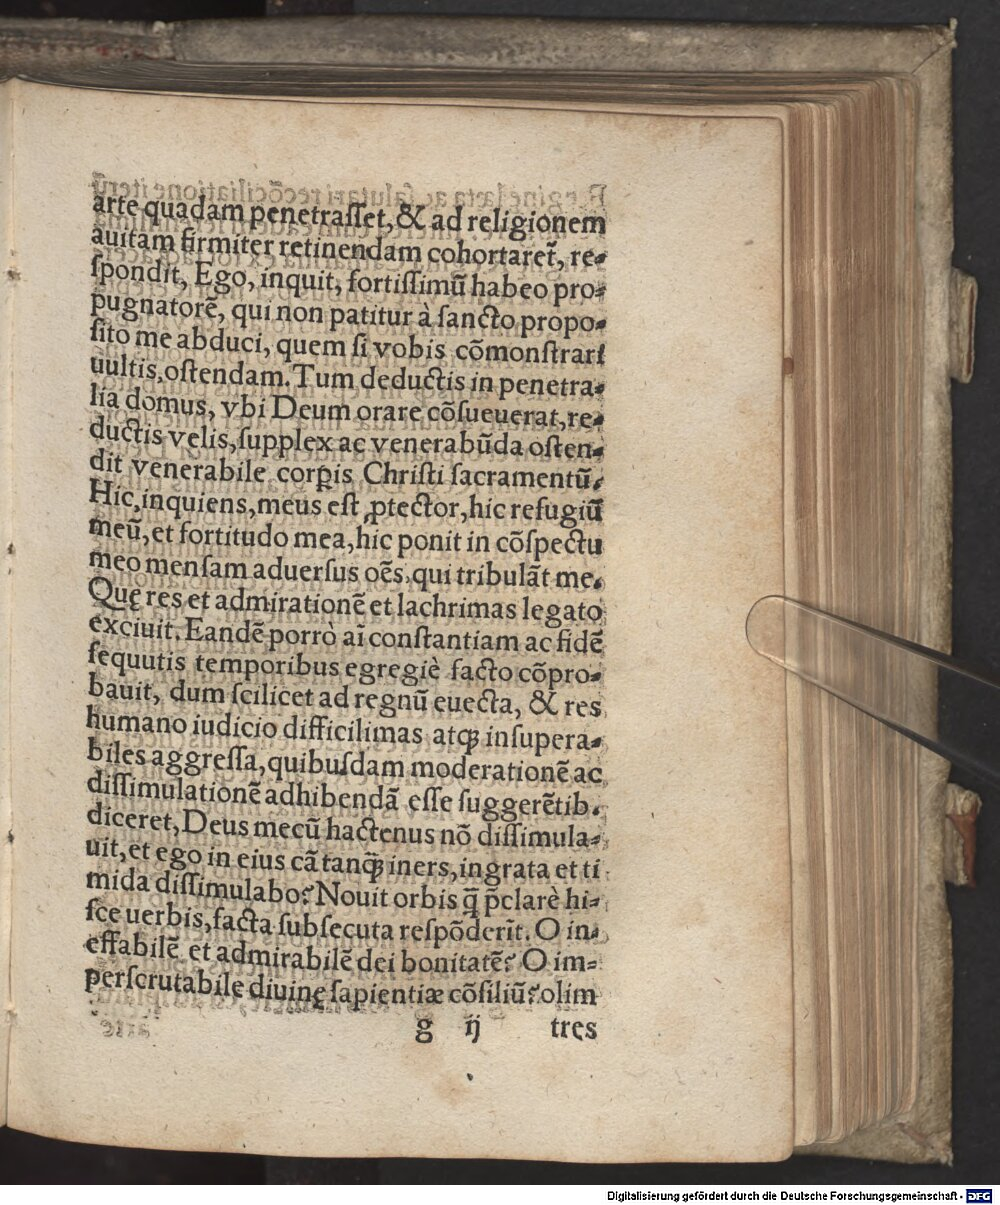 arte quadam penetraſſet, & ad religionem
auitam firmiter retinendam cohortaret᷑, re-
ſpondit, Ego, inquit, fortiſſimũ habeo pro-
pugnatorẽ, qui non patitur à ſancto propo-
ſito me abduci, quem ſi vobis cõmonſtrari
uultis, oſtendam. Tum deductis in penetra-
lia domus, vbi Deum orare cõſueuerat, re-
ductis velis, ſupplex ac venerabũda oſten-
dit venerabile corꝑis Chriſti ſacramentũ.
Hic, inquiens, meus eſt ꝓtector, hic refugiũ
meũ, et fortitudo mea, hic ponit in cõſpectu
meo menſam aduerſus oẽs, qui tribulãt me.
Quę res et admirationẽ et lachrimas legato
exciuit. Eandẽ porrò aĩ conſtantiam ac fidẽ
ſequutis temporibus egregiè facto cõpro-
bauit, dum ſcilicet ad regnũ euecta, & res
humano iudicio difficilimas atqꝫ inſupera-
biles aggreſſa, quibuſdam moderationẽ ac
diſſimulationẽ adhibendã eſſe ſuggerẽtib.
diceret, Deus mecũ hactenus nõ diſſimula-
uit, et ego in eius cã tanqꝫ̃ iners, ingrata et ti
mida diſſimulabo? Nouit orbis q̃ p̃clarè hi-
ſce uerbis, facta ſubſecuta reſpõderĩt. O in-
effabilẽ et admirabilẽ dei bonitatẽ? O im-
perſcrutabile diuinę ſapientiæ cõſiliũ? olim
g ij tres
Digitalisierung gefördert durch die Deutsche Forschungsgemeinschaft - DFG